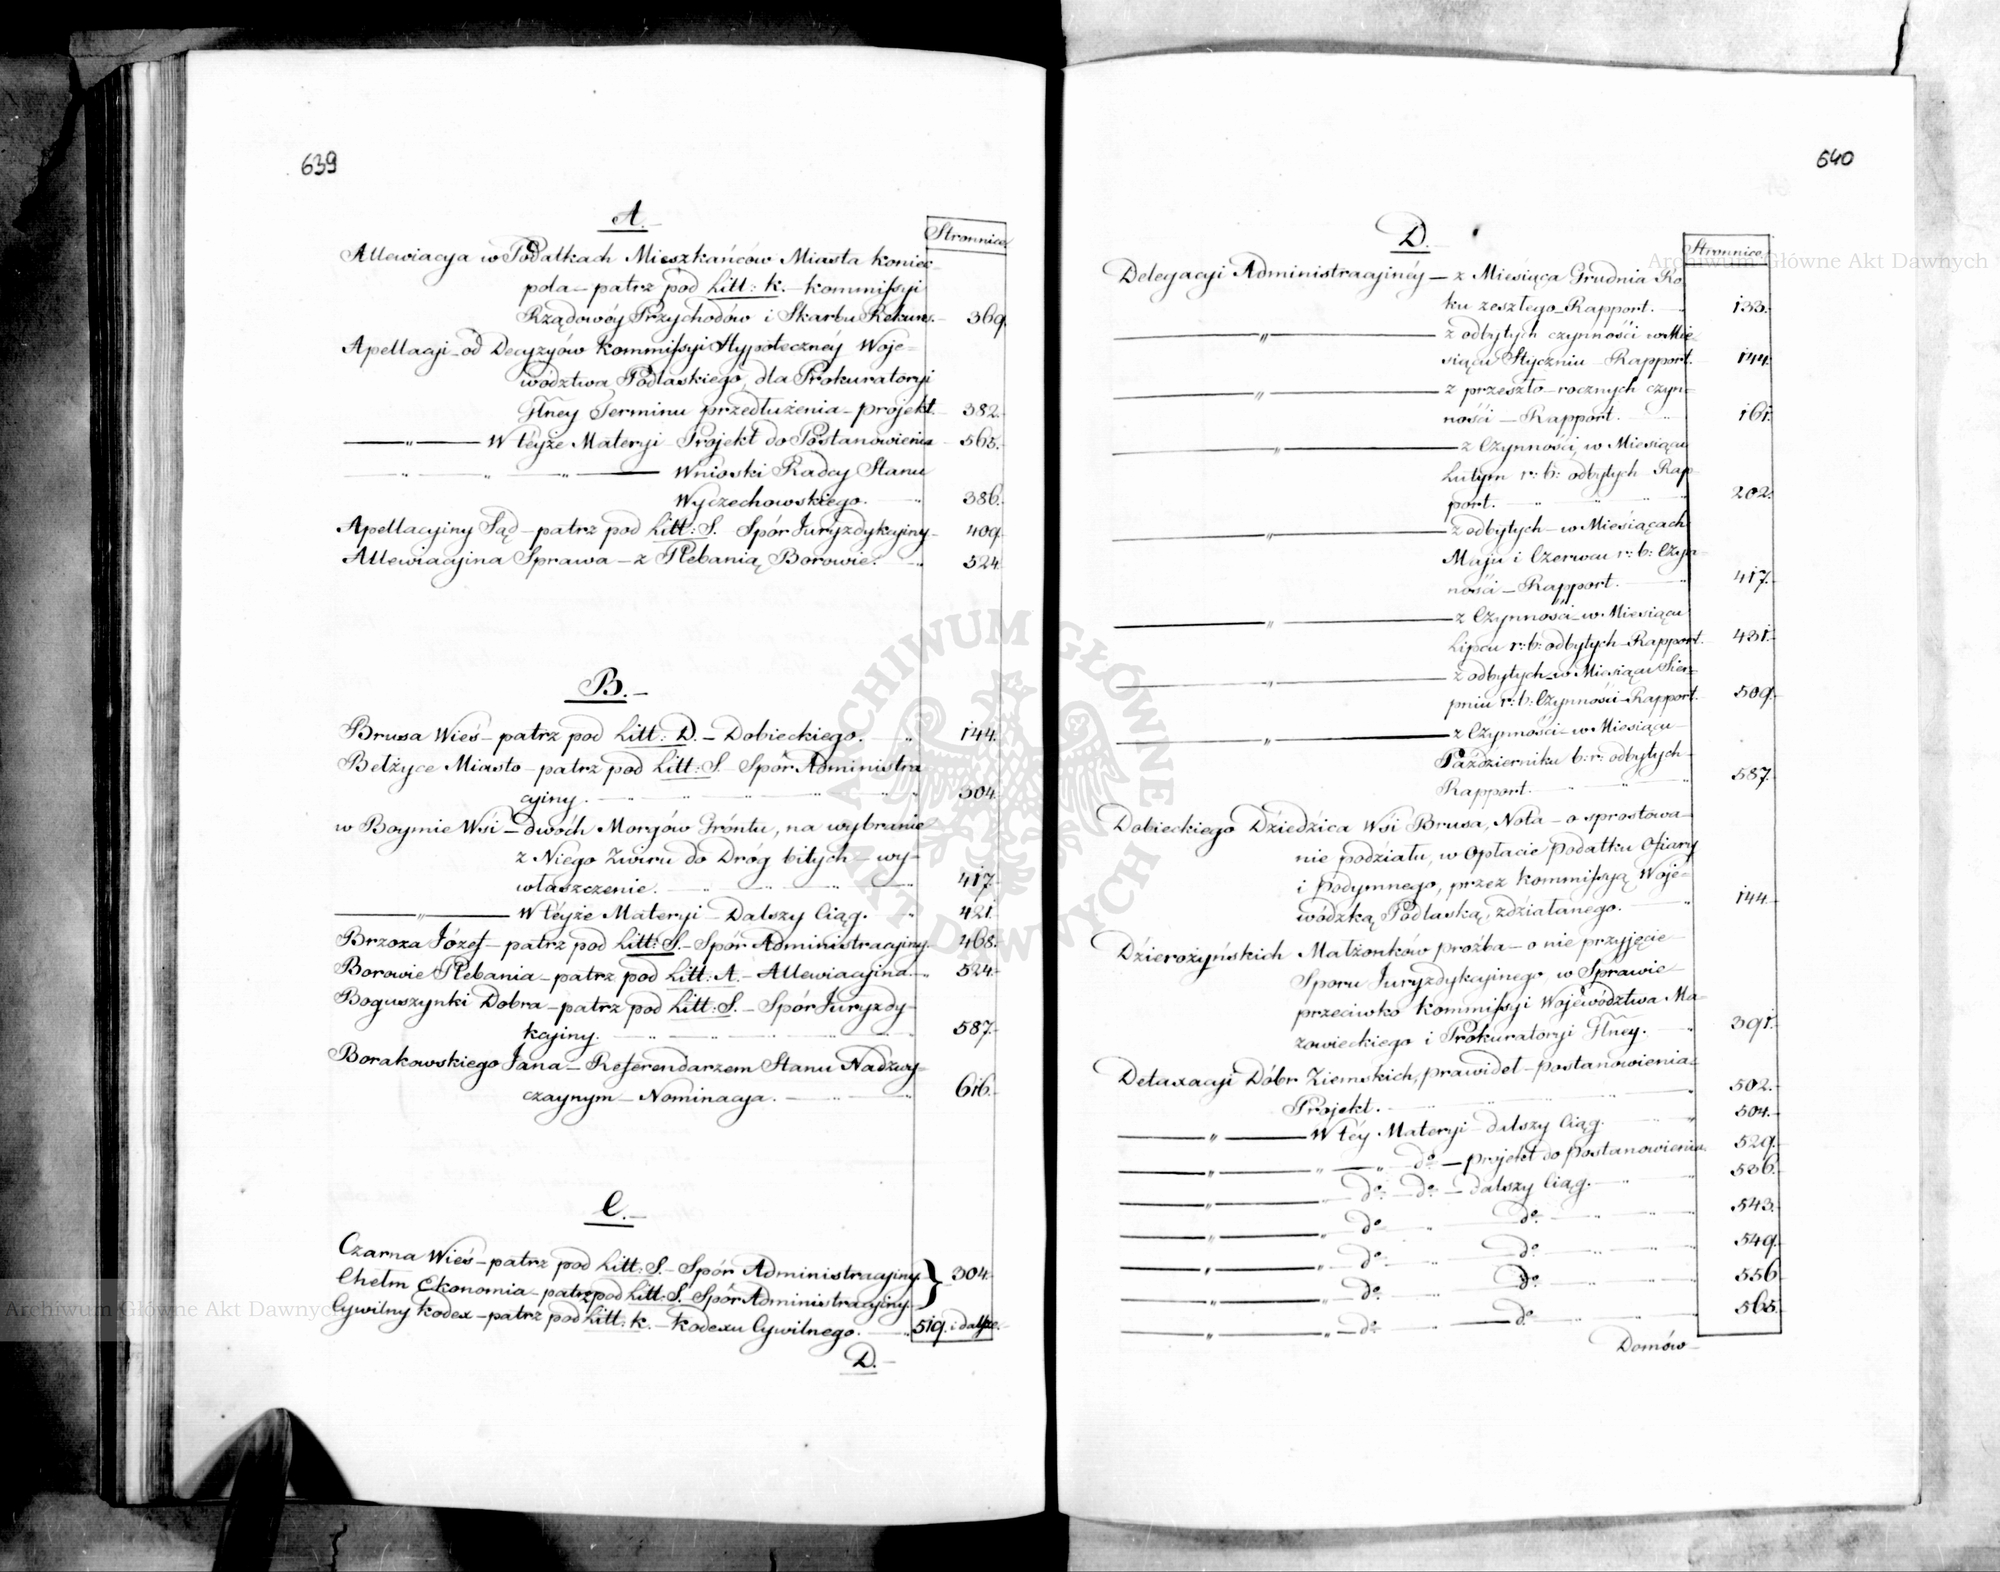 639
A.
Stronnice.
Allewiacya w Podatkach Mieszkańców Miasta Koniec-
pola — patrz pod Litt: K. — Kommissyi
Rządowéy Przychodów i Skarbu Rekurs. — 369.
Apellacji od Decyzyów Kommissyi Hypoteczney Woje-
wództwa Podlaskiego, dla Prokuratoryi
Glney Terminu przedłużenia — projekt. 382.
—— „ —— W téyże Materyi Projekt do Postanowienia 565.
„ „ „ —— Wnioski Radcy Stanu
Wyczechowskiego. „ 386.
Apellacyjny Sąd — patrz pod Litt: S. Spór Juryzdykcyjny 409.
Allewiacyjna Sprawa — z Plebanią Borowie. „ 524.
B.
Brusa Wieś — patrz pod Litt: D. — Dobieckiego. „ 144.
Bełżyce Miasto — patrz pod Litt: S. — Spór Administra
cyjny. „ „ „ „ 304.
w Boymie Wsi — dwóch Morgów Gróntu, na wybranie
z Niego Żwiru do Dróg bitych — wy-
właszczenie. „ „ „ 417.
—— „ —— W téyże Materyi — Dalszy Ciąg. „ 421.
Brzoza Józef — patrz pod Litt: S. — Spór Administracyjny. 468.
Borowie Plebania — patrz pod Litt: A. — Allewiacyjna. „ 524.
Boguszynki Dobra — patrz pod Litt: S. — Spór Juryzdy-
kcyjny. „ „ „ „ 587.
Borakowskiego Jana — Referendarzem Stanu Nadzwy-
czaynym — Nominacya. „ „ 616.
C.
Czarna Wieś — patrz pod Litt: S. — Spór Administracyjny } 304.
Chełm Ekonomia — patrz pod Litt: S. Spór Administracyjny.
Cywilny Kodex — patrz pod Litt: K. — Kodexu Cywilnego. „ 519. i dalsze.
D.
640
D.
Stronnice.
Delegacyi Administracyjnéy — z Miesiąca Grudnia Ro-
ku zeszłego — Rapport. 133.
—— „ —— z odbytych czynności w Mie-
siącu Styczniu — Rapport. 144.
—— „ —— z przeszło-rocznych czyn-
ności — Rapport. „ 161.
—— „ —— z Czynności w Miesiącu
Lutym r: b: odbytych Rap-
port. „ „ „ 202.
—— „ —— z odbytych — w Miesiącach
Maju i Czerwcu r: b: Czyn-
ności — Rapport. „ 417.
—— „ —— z Czynności w Miesiącu
Lipcu r: b: odbytych — Rapport. 431.
—— „ —— z odbytych w Miesiącu Sier-
pniu r: b: Czynności — Rapport. 509.
—— „ —— z Czynności — w Miesiącu
Październiku b: r: odbytych
Rapport. „ „ 587.
Dobieckiego Dziedzica Wsi Brusa, Nota — o sprostowa-
nie podziału, w Opłacie Podatku Ofiary
i Podymnego, przez Kommissyą Woje-
wódzką Podlaską, zdziałanego. „ 144.
Dzierożyńskich Małżonków proźba — o nie przyjęcie
Sporu Juryzdykcyjnego, w Sprawie
przeciwko Kommissyi Województwa Ma-
zowieckiego i Prokuratoryi Glney. „ 391.
Detaxacyi Dóbr Ziemskich, prawideł — postanowienia
Projekt. „ 502.
—— „ —— W téy Materyi — dalszy Ciąg. „ 504.
—— „ —— „ — „ do — projekt do Postanowienia. 529.
—— „ —— „ do do — dalszy Ciąg. „ 536.
—— „ —— „ do „ do „ „ 543.
—— „ —— „ do „ do „ „ 549.
—— „ —— „ do „ do „ „ 556.
—— „ —— „ do „ do „ „ 565.
Domów
Archiwum Główne Akt Dawnych
ARCHIWUM GŁÓWNE AKT DAWNYCH
Archiwum Główne Akt Dawnych